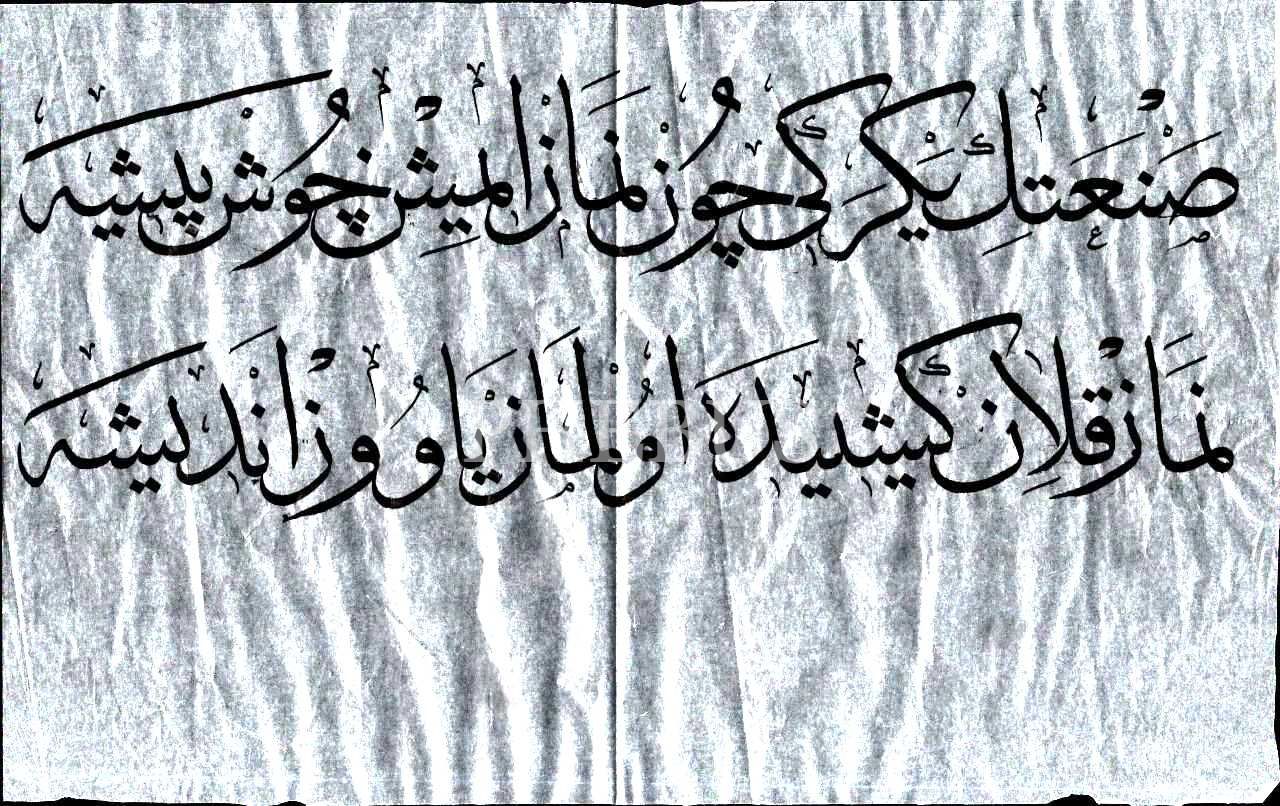 صَنْعَتِكْ يَكْرَكِی چُونْ نَمَازْ ایمیشْ خُوشْ پیشه
نَمَازْ قِلَانْ كیشیدَه اُولْمَازْ یَاوُوزْ اَنْدیشه